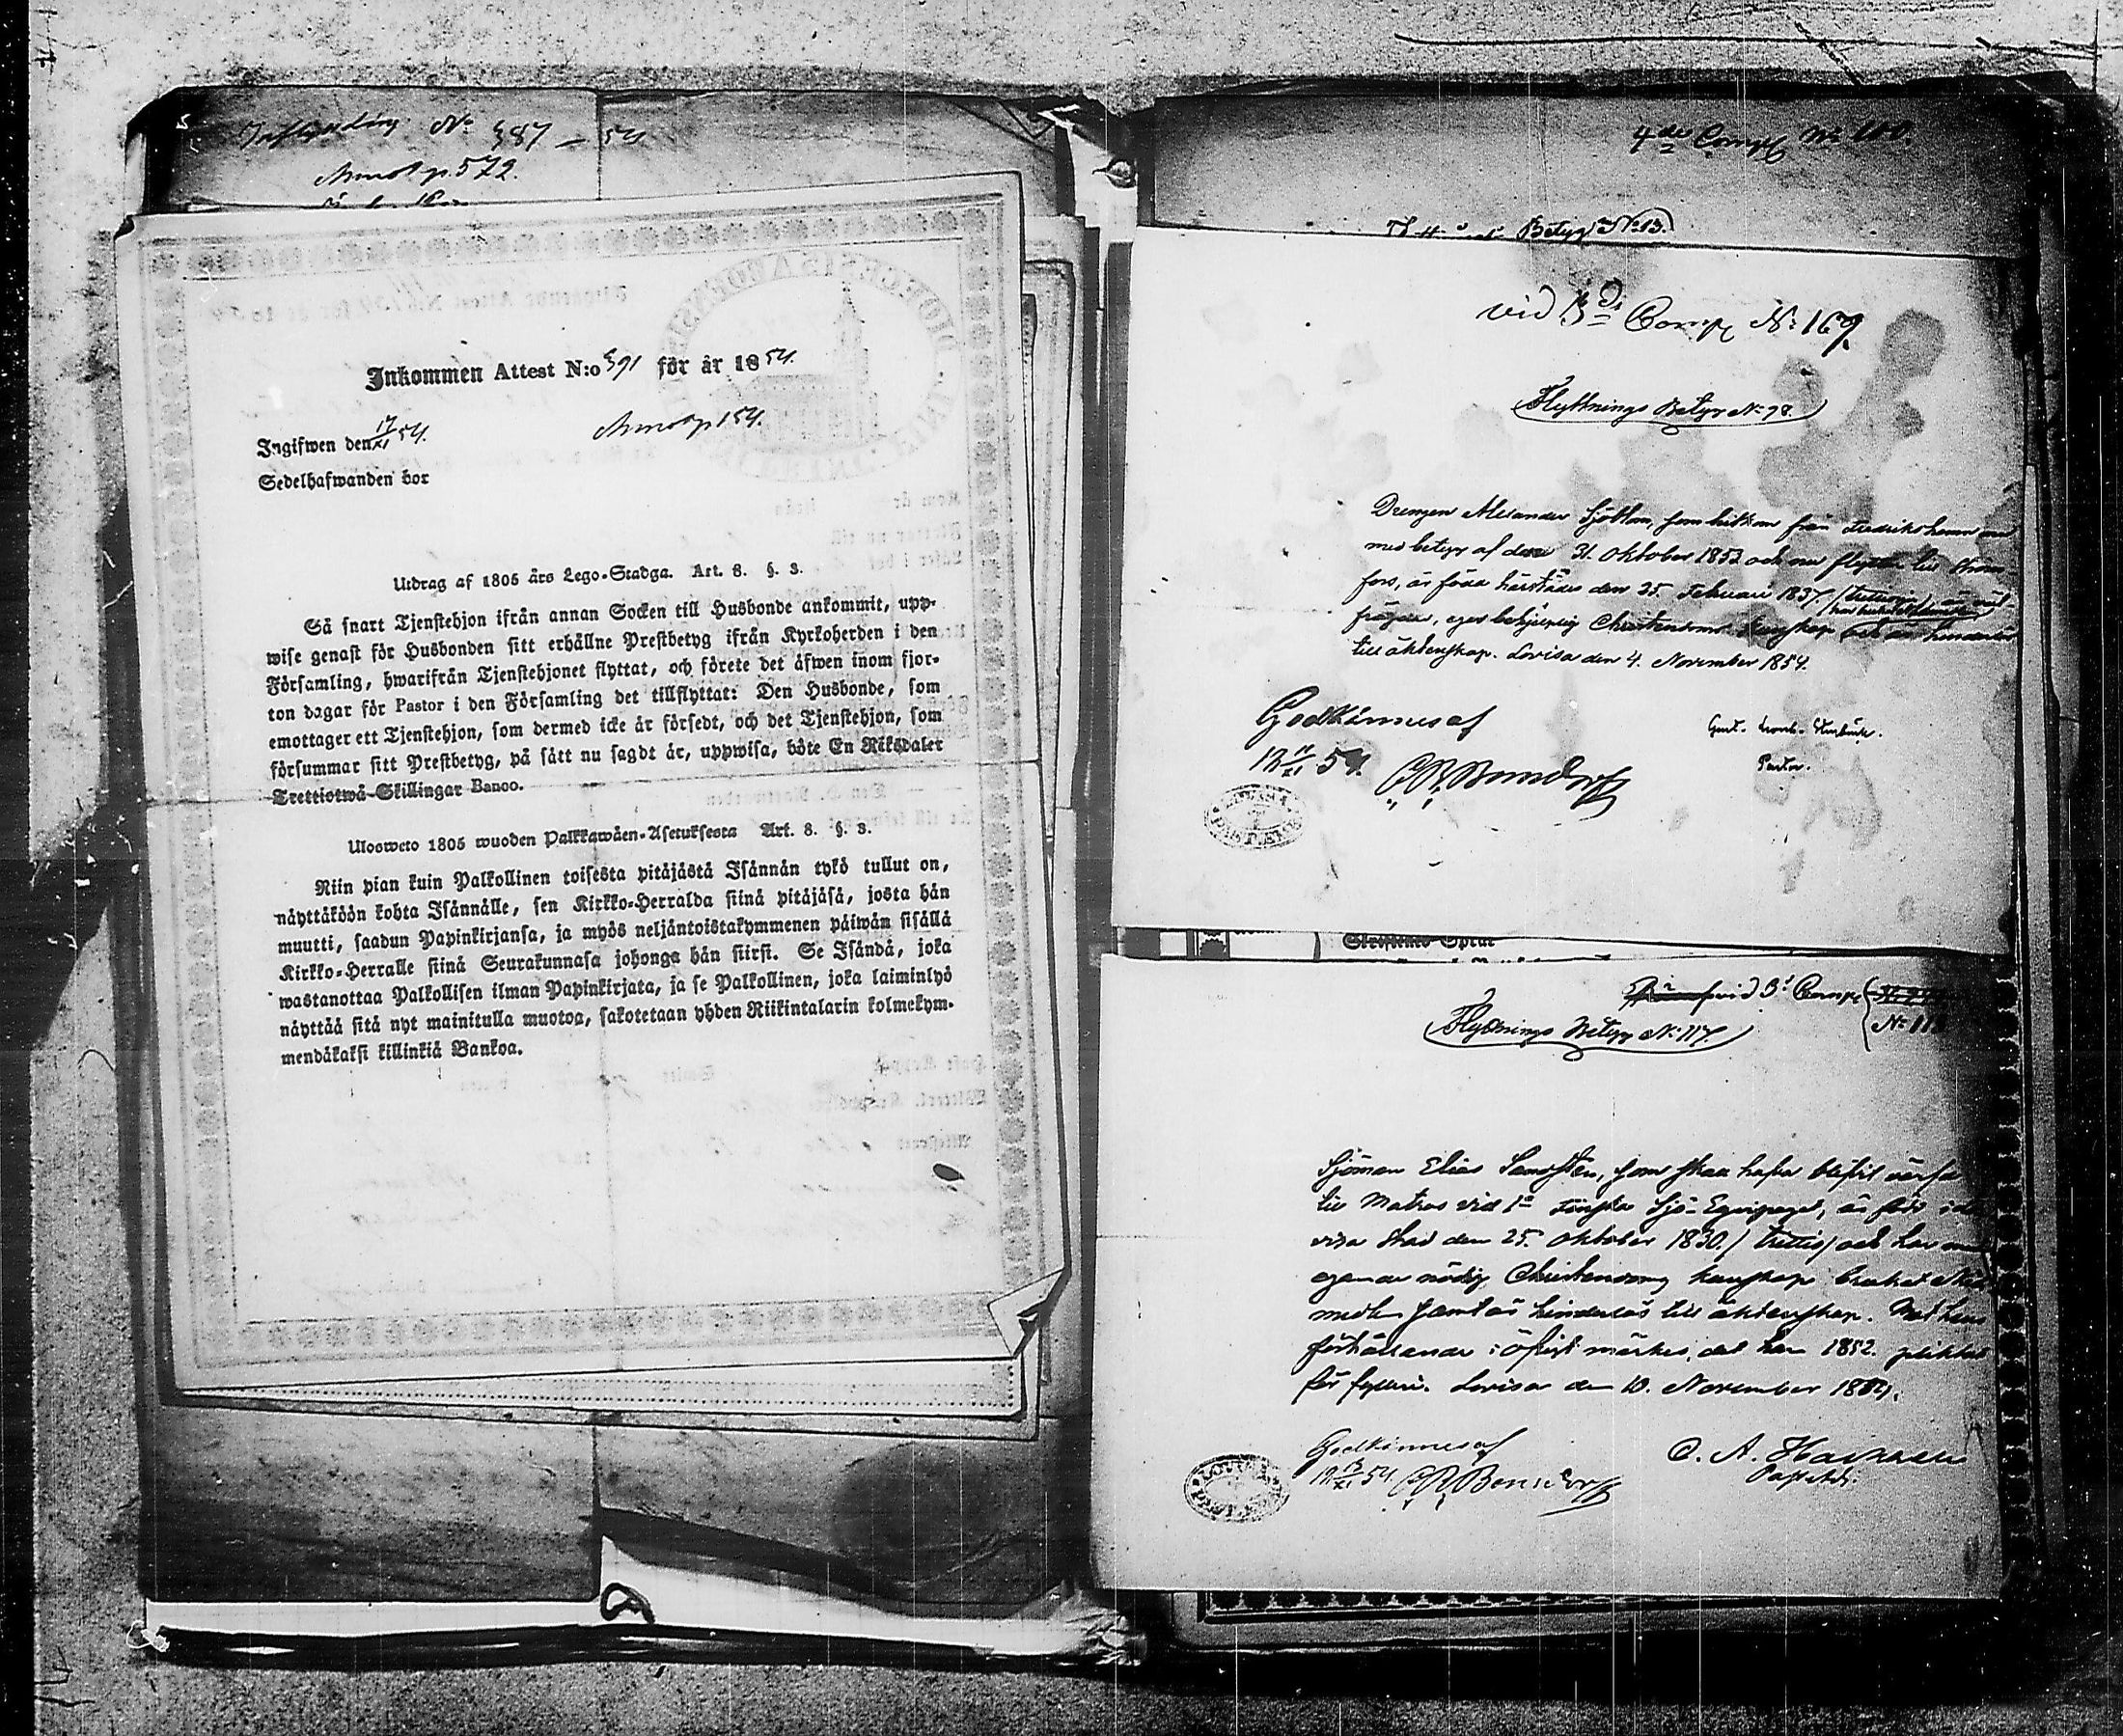 Inflyttning No 587 – 54
Annot p. 572.
Inkommen Attest N:o 591 för år 1854.
Ingifwen den 17/XI 54.
Annot p 154.
Sedelhafwanden bor
Utdrag af 1805 års Lego-Stadga. Art. 8. §. 3.
Så snart Tjenstehjon ifrån annan Socken till Husbonde ankommit, upp-
wise genast för Husbonden sitt erhållne Prestbetyg ifrån Kyrkoherden i den
Församling, hwarifrån Tjenstehjonet flyttat, och förete det äfwen inom fjor-
ton dagar för Pastor i den Församling det tillflyttat: Den Husbonde, som
emottager ett Tjenstehjon, som dermed icke är försedt, och det Tjenstehjon, som
försummar sitt Prestbetyg, på sätt nu sagdt är, uppwisa, böte En Riksdaler
Trettiotwå Skillingar Banco.
Ulosweto 1805 wuoden Palkkawäen-Asetuksesta Art. 8. §. 3.
Niin pian kuin Palkollinen toisesta pitäjästä Isännän tykö tullut on,
näyttäköön kohta Isännälle, sen Kirkko-Herralda siinä pitäjäsä, josta hän
muutti, saadun Papinkirjansa, ja myös neljäntoistakymmenen päiwän sisällä
Kirkko-Herralle siinä Seurakunnasa johonga hän siirsi. Se Isändä, joka
wastanottaa Palkollisen ilman Papinkirjata, ja se Palkollinen, joka laiminlyö
näyttää sitä nyt mainitulla muotoa, sakotetaan yhden Riikintalarin kolmekym-
mendäkaksi killinkiä Bankoa.
4de Comp No 100.
Betyg No 13.
vid 3dj Comp No 169.
Flyttnings Betyg No 98.
Drengen Alexander Sjöblom, som hitkom från Fredrikshamn
med betyg af den 31. Oktober 1853 och nu flyttar till Ström-
fors, är född härstädes den 25. Februari 1837.
frägdad, eger behjelplig Christendoms kunskap och är hinderlös
till äktenskap. Lovisa den 4. November 1854.
Godkännes af
12/XI 54. C. R. Bonsdorff
Pastor.
LOVISA
vid 3d Comp
No 11
Flyttnings Betyg No 117.
Sjöman Elias Landsten, som skall hafva blifvit värfv
till Matros vid 1a Finska Sjö-Equipaget, är född i
visa Stad den 25. Oktober 1830. / trettio / och har
egande nödig Christendoms kunskap brukat
medlen samt är hinderlös till äktenskap. Med hans
förhållande i öfrigt märkes, att han 1852. pliktat
för fylleri. Lovisa den 10. November 1854.
Godkännes af
12/XI 54 C R Bonsdorff
C. A.
LOVISA